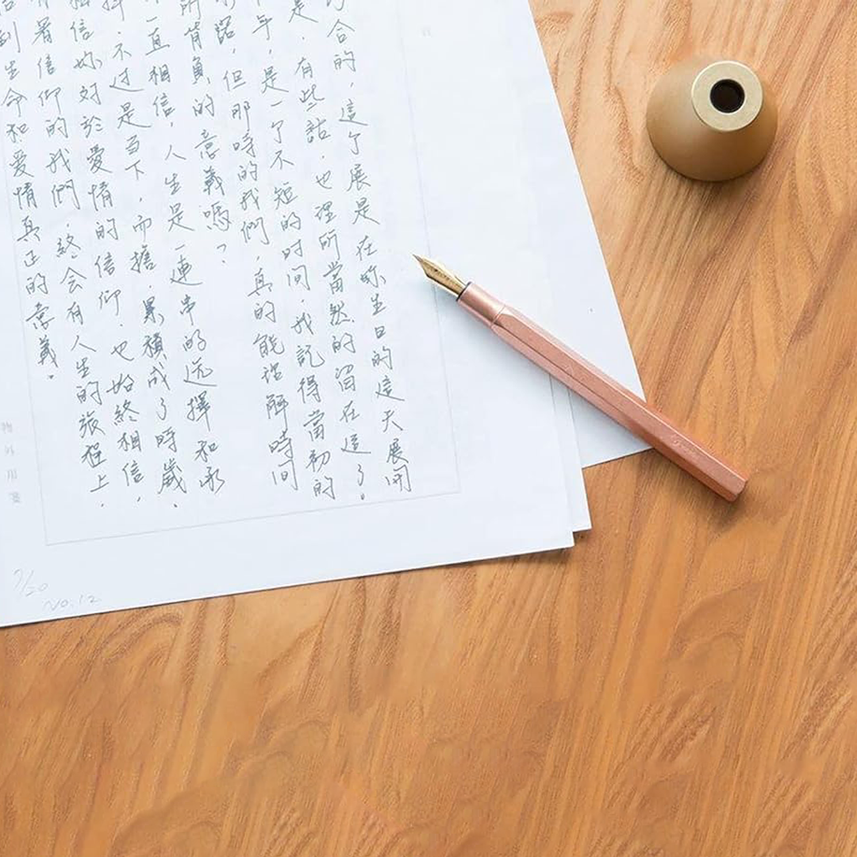 合的，這个展是在妳生日的這天展開
是，有些話，也理所當然的留在這了。
年，是一个不短的时间，我記得當初的
諾，但那時的我們，真的能理解時间
所背負的意義嗎？
一直相信，人生是一連串的选擇和承
擇，不过是当下，而擔，累積成了時歲，
相信妳对於愛情的信仰，也始終相信，
著信仰的我們，終会有人生的旅程上，
到生命和爱情真正的意義。
物外用箋
7/20
NO.12